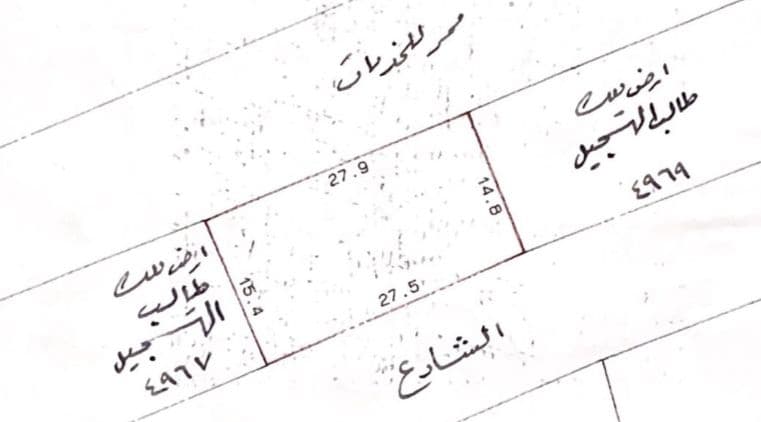 ممر للخدمات
ارض ملك
طالب التسجيل
٤٩٦٩
27.9
14.8
15.4
27.5
ارض ملك
طالب
التسجيل
٤٩٦٧
الشارع